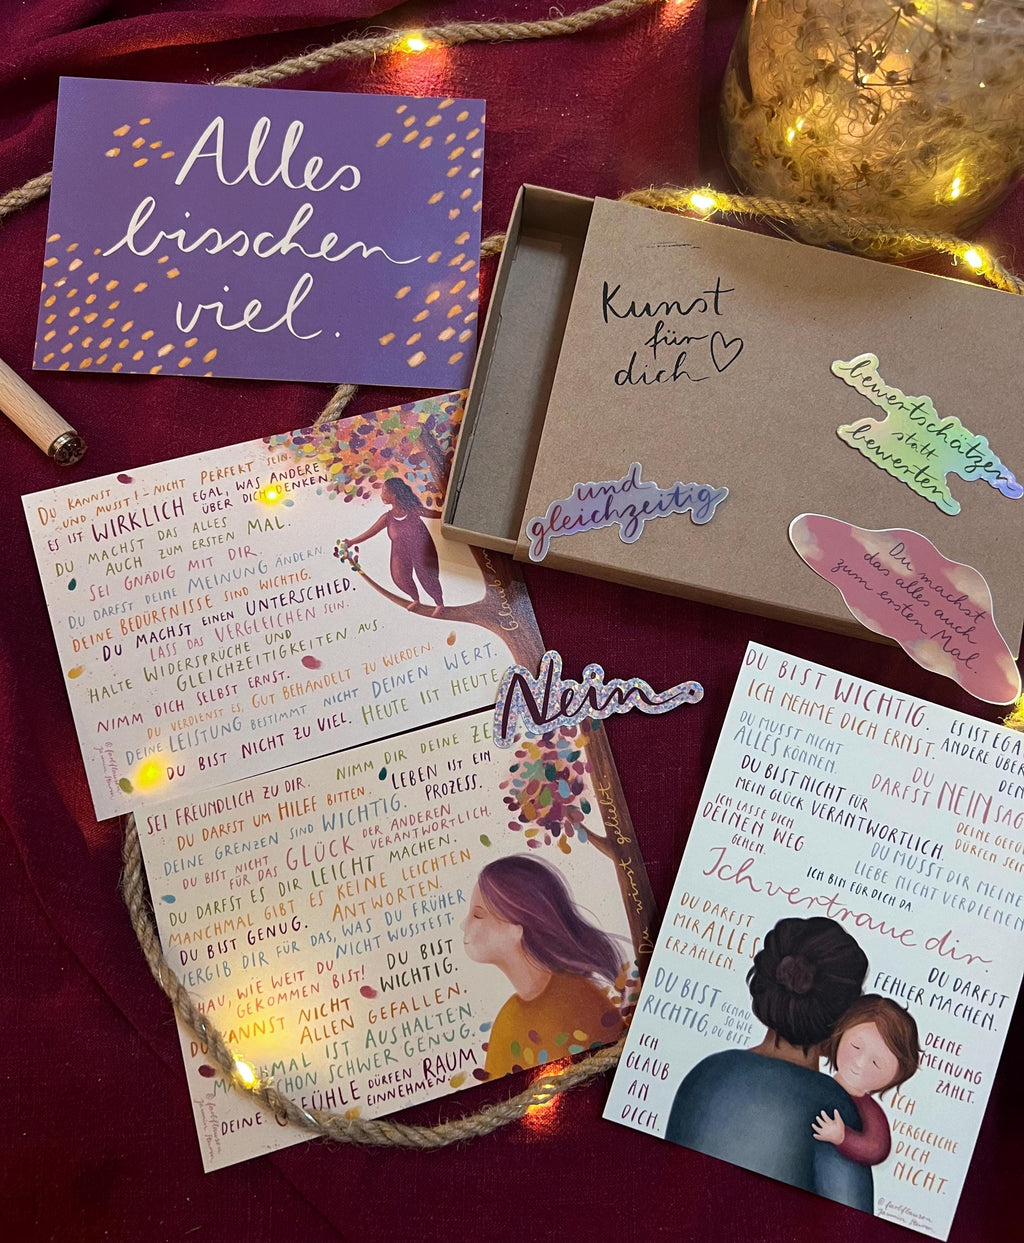 Alles
bisschen
viel.
Kunst
für
dich
bewertschätzen
statt
bewerten
und
gleichzeitig
Du machst
das alles auch
zum ersten Mal.
DU KANNST
UND MUSST! - NICHT PERFEKT SEIN.
ES IST WIRKLICH EGAL, WAS ANDERE
ÜBER DICH DENKEN.
DU MACHST DAS ALLES
AUCH ZUM ERSTEN MAL.
SEI GNÄDIG MIT DIR.
DU DARFST DEINE MEINUNG ÄNDERN.
DEINE BEDÜRFNISSE SIND WICHTIG.
DU MACHST EINEN UNTERSCHIED.
LASS DAS VERGLEICHEN SEIN.
HALTE WIDERSPRÜCHE UND
GLEICHZEITIGKEITEN AUS.
NIMM DICH SELBST ERNST.
DU VERDIENST ES, GUT BEHANDELT ZU WERDEN.
DEINE LEISTUNG BESTIMMT NICHT DEINEN WERT.
DU BIST NICHT ZU VIEL. HEUTE IST HEUTE
Glaub an
© farbflausen
Nein.
SEI FREUNDLICH ZU DIR. NIMM DIR DEINE ZE
DU DARFST UM HILFE BITTEN. LEBEN IST EIN
PROZESS.
DEINE GRENZEN SIND WICHTIG.
DU BIST NICHT
FÜR DAS GLÜCK DER ANDEREN
VERANTWORTLICH.
DU DARFST ES DIR LEICHT MACHEN.
MANCHMAL GIBT ES KEINE LEICHTEN
ANTWORTEN.
DU BIST GENUG.
VERGIB DIR FÜR DAS, WAS DU FRÜHER
NICHT WUSSTEST.
HAU, WIE WEIT DU
GEKOMMEN BIST!
DU BIST
WICHTIG.
DU KANNST NICHT
ALLEN GEFALLEN.
MAL IST AUSHALTEN
SCHON SCHWER GENUG.
DEINE GEFÜHLE DÜRFEN RAUM
EINNEHMEN.
Du wirst geliebt
© farbflausen
DU BIST WICHTIG.
ICH NEHME DICH ERNST.
ES IST EGA
ANDERE ÜBER
DEN
DU MUSST NICHT
ALLES KÖNNEN.
DU
DARFST NEIN SAG
DU BIST NICHT FÜR
MEIN GLÜCK VERANTWORTLICH.
ICH LASSE DICH
DEINEN WEG
GEHEN.
DEINE GEFÜ
DÜRFEN SEI
DU MUSST DIR MEINE
LIEBE NICHT VERDIENEN
ICH BIN FÜR DICH DA.
Ich vertraue dir.
DU DARFST
MIR ALLES
ERZÄHLEN.
DU DARFST
FEHLER MACHEN.
DU BIST GENAU
SO WIE
RICHTIG, DU BIST.
DEINE
MEINUNG
ZÄHLT.
ICH
GLAUB
AN
DICH.
ICH
VERGLEICHE
DICH
NICHT.
© farbflausen